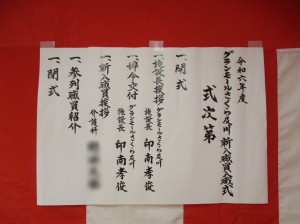 令和六年度
グランモールさくら及川 新入職員入職式
式次第
一、開式
一、施設長挨拶
グランモールさくら及川
施設長 印南孝俊
一、辞令交付
グランモールさくら及川
施設長 印南孝俊
一、新入職員挨拶
介護科
一、参列職員紹介
一、閉式